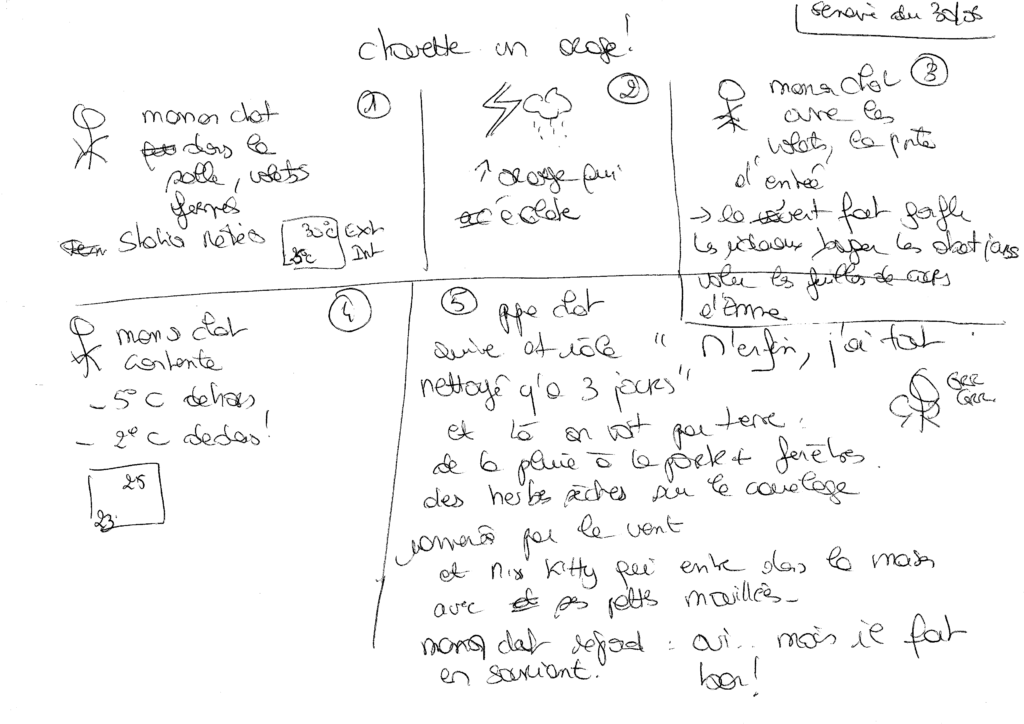 semaine du 30/06
chouette un orage!
1
maman chat
dans la
salle, volets
fermés
Station météo
30°C Ext
25°C Int
2
↑ orage qui
éclate
3
maman chat
ouvre les
volets, la porte
d'entrée
→ le vent fait gonfler
les rideaux, les abat jours
voler les feuilles de
d'Anne
4
maman chat
contente
- 5°C dehors
- 2°C dedans!
25
23
5
ppe chat
arrive et râle " M'enfin, j'ai tout
nettoyé y'a 3 jours"
GRR
GRR
et là on voit par terre :
de la pluie à la porte + fenêtres.
des herbes sèches sur le carrelage
ramenées par le vent
et Mix Kitty qui entre dans la maison
avec ses pattes mouillées -
maman chat répond : oui.. mais il fait
en souriant. bon!